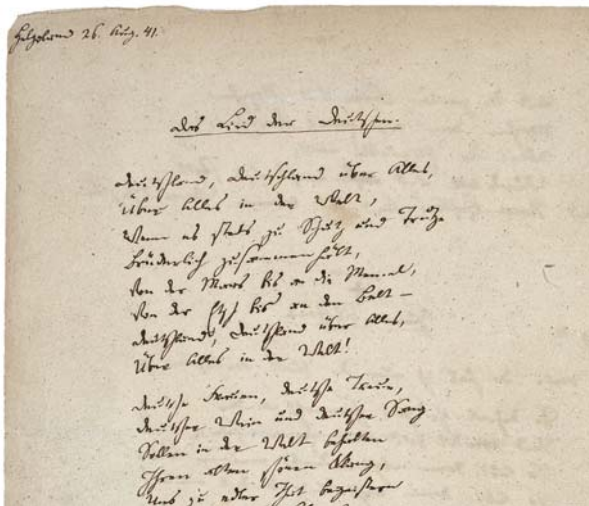 Helgoland 26. Aug. 41.
Das Lied der Deutschen.
Deutschland, Deutschland über Alles,
Über Alles in der Welt,
Wenn es stets zu Schutz und Trutze
Brüderlich zusammenhält,
Von der Maas bis an die Memel,
Von der Etsch bis an den Belt –
Deutschland, Deutschland über Alles,
Über Alles in der Welt!
Deutsche Frauen, deutsche Treue,
Deutscher Wein und deutscher Sang
Sollen in der Welt behalten
Ihren alten schönen Klang,
Uns zu edler That begeistern